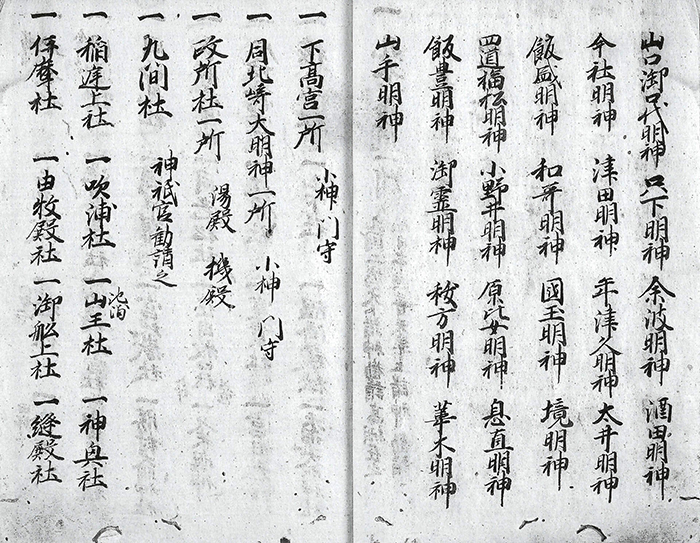 山口御只代明神 只下明神 余波明神 酒田明神
今社明神 津田明神 年津久明神 太井明神
飯盛明神 和平明神 國玉明神 境明神
四道福松明神 小野井明神 原比女明神 息直明神
飯豊明神 御霊明神 秡方明神 華木明神
山手明神
一 下高宮一所 小神 門守
一 同北﨑大明神一所 小神 門守
一 政所社一所 湯殿 機殿
一 九間社 神祇官勧請之
一 稲庭上社 一 吹浦社 一 山王社 一 神輿社
一 拝𡸴社 一 由牧殿社 一 御船上社 一 縫殿社